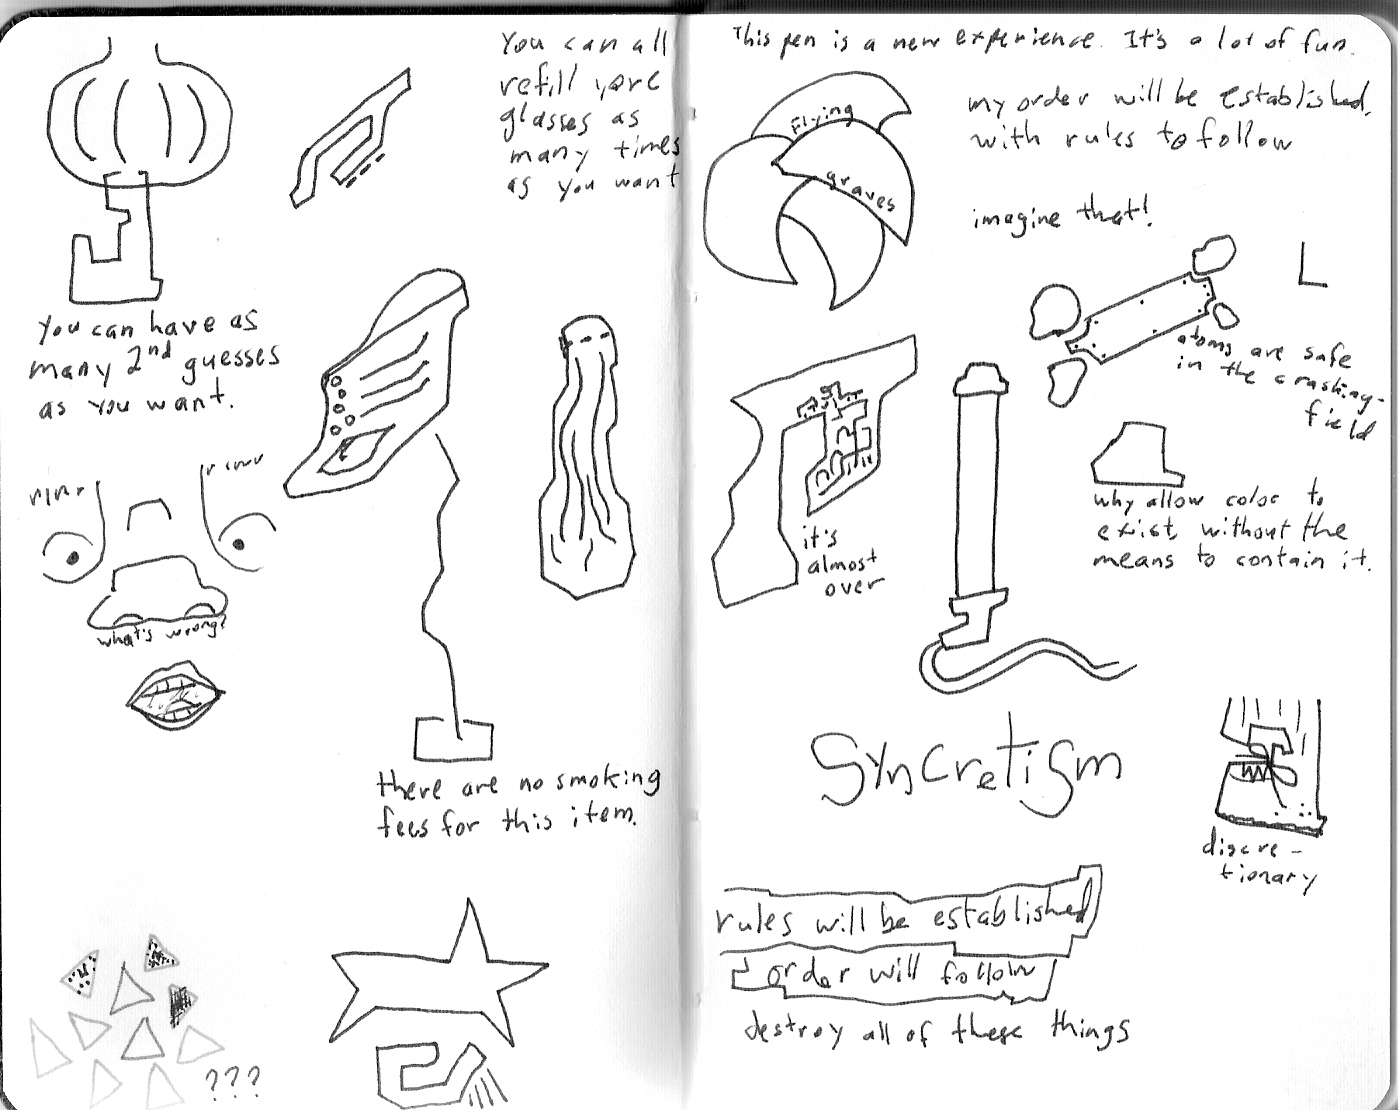 You can all
refill yore
glasses as
many times
as you want
You can have as
many 2nd guesses
as you want.
what's wrong?
there are no smoking
fees for this item.
???
This pen is a new experience. It's a lot of fun.
my order will be established,
with rules to follow
imagine that!
Flying
graves
L
atoms are safe
in the crashing-
field
why allow color to
exist, without the
means to contain it.
it's
almost
over
Syncretism
discre-
tionary
rules will be established
order will follow
destroy all of these things